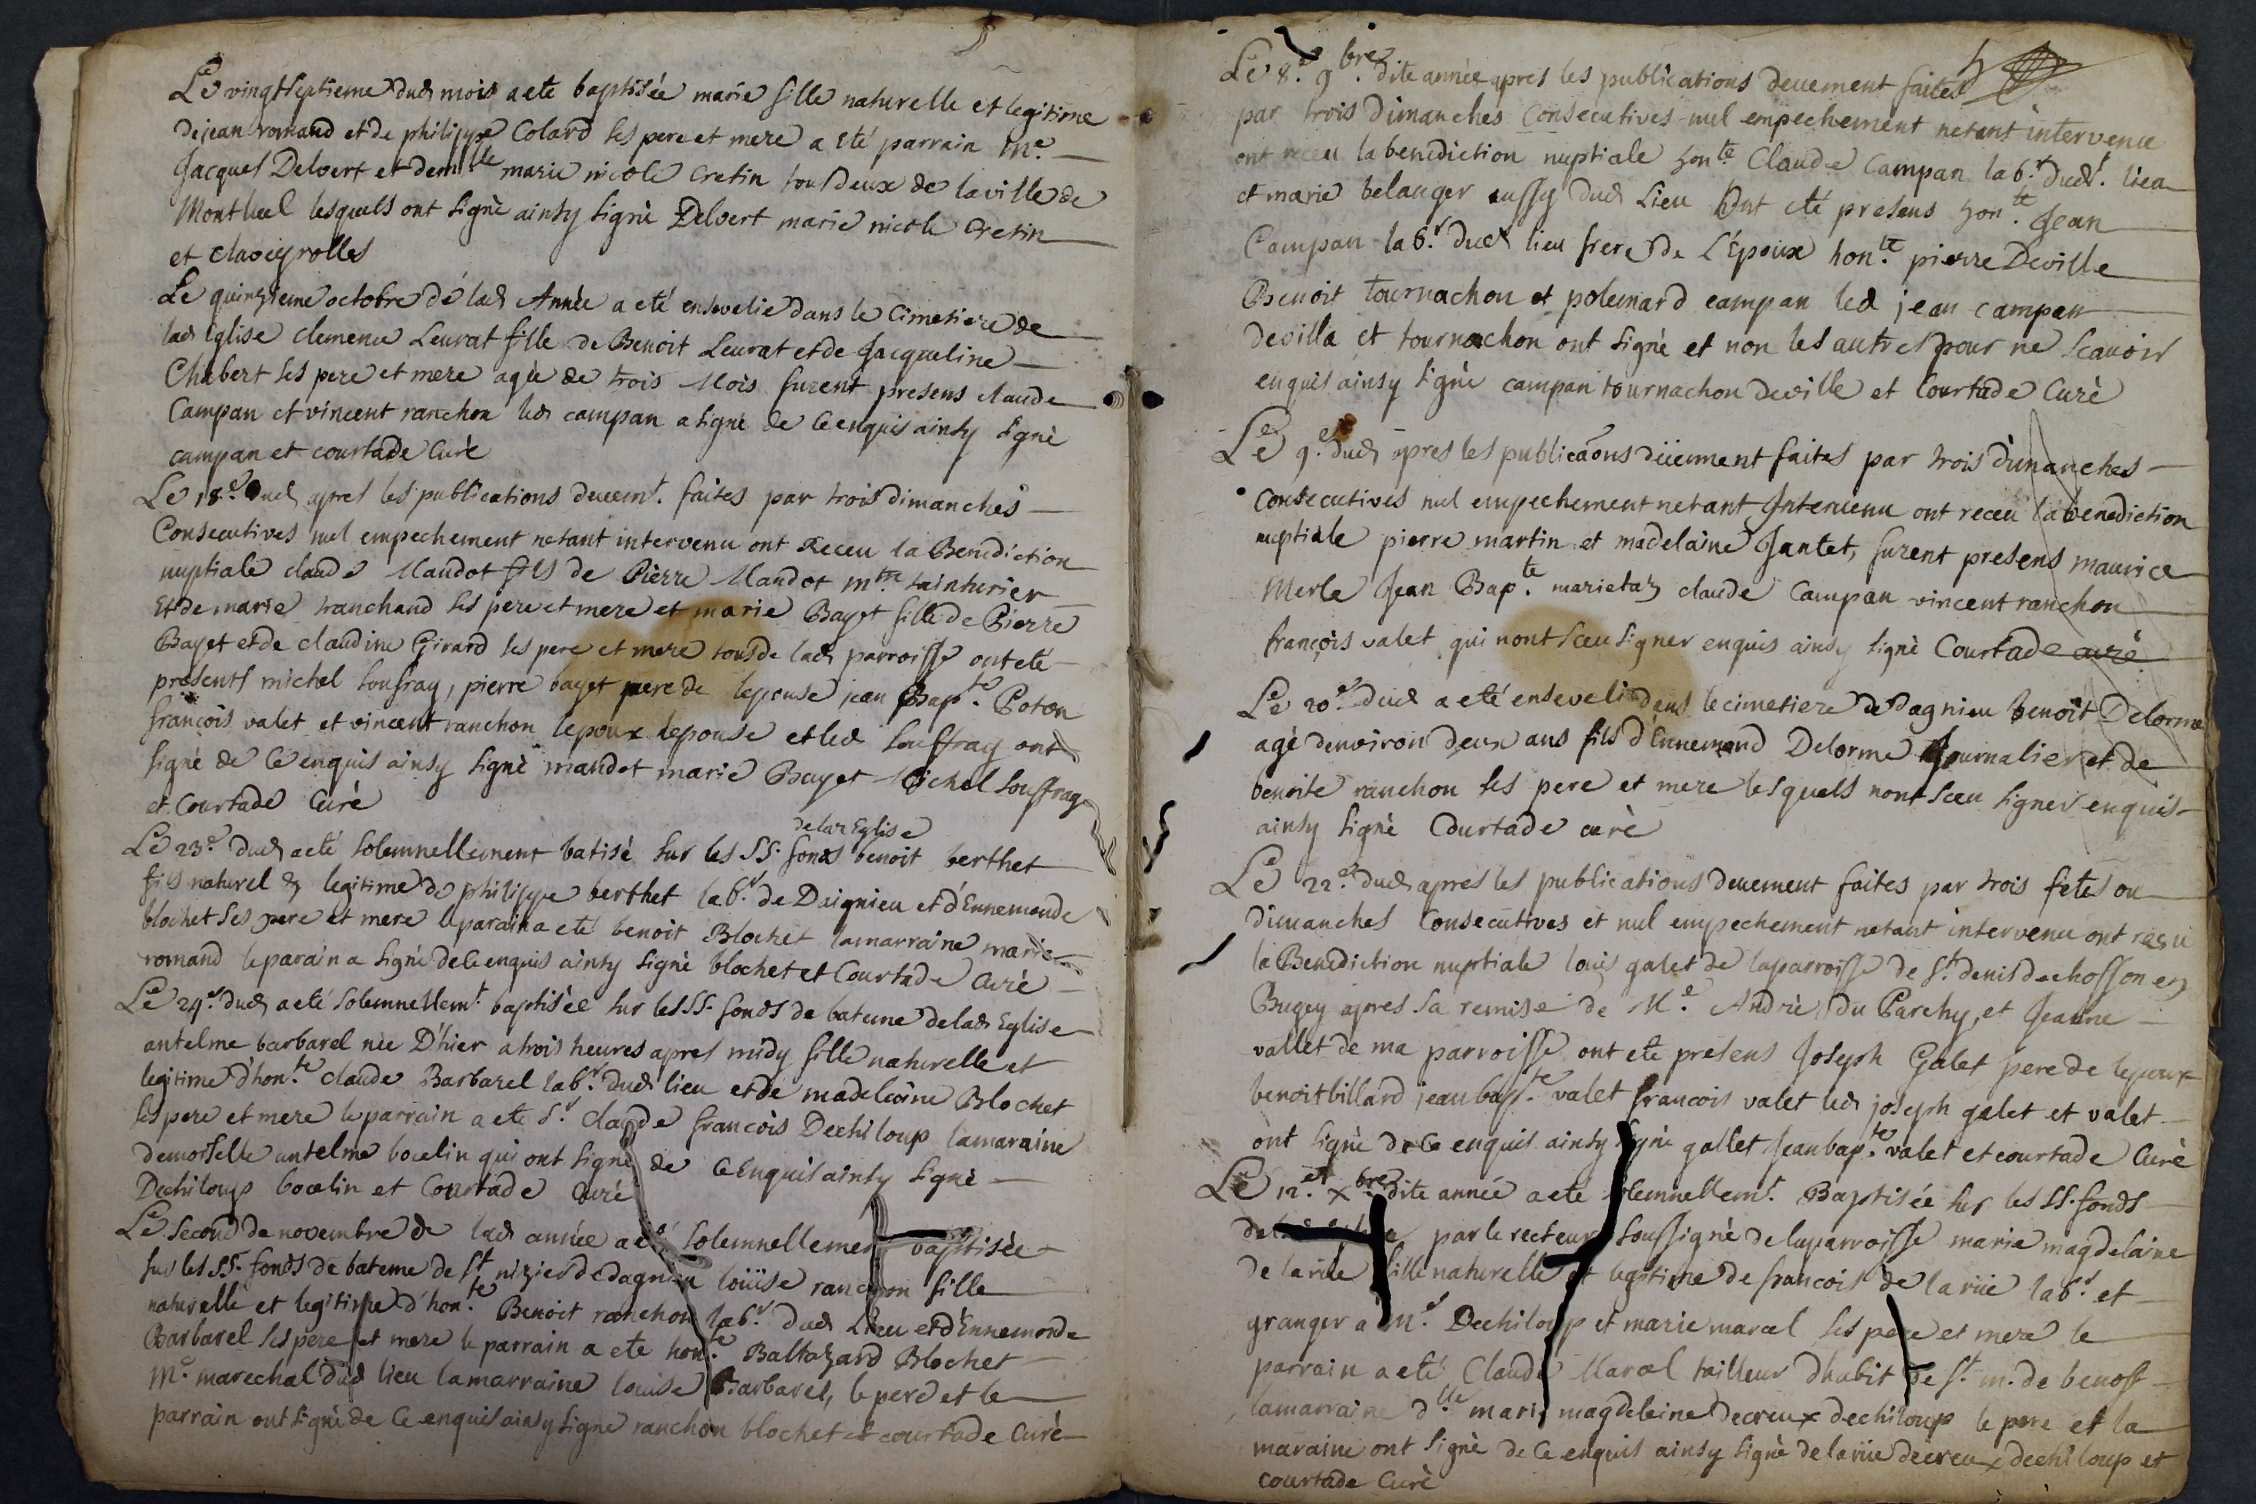 Le vingt septieme dud mois a ete baptisée marie fille naturelle et legitime
de jean romand et de philippe Colard ses pere et mere a eté parrain me.
Jacques Delvert et demlle marie nicole Cretin tous deux de la ville de
Montluel lesquels ont signé ainsy signé Delvert marie nicole Cretin
et claveyrolles
Le quinzieme octobre de lad Année a eté ensevelie dans le Cimetiere de
lad Eglise clemence Leurat fille de Benoit Leurat et de Jacqueline
Chabert ses pere et mere agée de trois Mois furent presens claude
Campan et vincent ranchon led campan a signé de ce enquis ainsy signé
campan et courtade Curé
Le 18e dud apres les publications deuemt. faites par trois dimanches
Consecutives nul empechement netant intervenu ont Receu la Benediction
nuptiale claude Maudot fils de Pierre Maudot mtre tainturier
Et de marie tranchand ses pere et mere et marie Bayet fille de Pierre
Bayet et de claudine Girard ses pere et mere tous de lad parroisse ont eté
presents michel souffray, pierre bayet pere de lepouse jean Bapte. Poton
francois valet et vincent ranchon lepoux lepouse et led souffray ont
signé de Ce enquis ainsy signé maudot marie Bayet Michel souffray
et Courtade Curé
de lad Eglise
Le 23e dud a eté solemnellement batisé sur les SS. fonds benoit berthet
fils naturel & legitime de philippe berthet labr. de Dagnieu et d'Ennemonde
blochet ses pere et mere le parain a eté benoit Blochet la marraine marie
romand le parain a signé de ce enquis ainsy signé blochet et Courtade Curé
Le 29e dud a eté solemnellemt. baptisée sur les SS. fonds de bateme de lad Eglise
antelme barbarel née D'hier a trois heures apres midy fille naturelle et
legitime d'honte. claude Barbarel labr. dud lieu et de madelaine Blochet
ses pere et mere le parrain a ete Sr. claude francois Dechiloup la maraine
demoiselle antelme bocelin qui ont signé de Ce Enquis ainsy signé
Dechiloup bocelin et Courtade Curé
Le second de novembre de lad année a eté solemnellement baptisée
sur les SS. fonds de bateme de St nizier de dagnieu loüise ranchon fille
naturelle et legitime d'honte. Benoit ranchon labr. dud Lieu et d'Ennemonde
Barbarel ses pere et mere le parrain a ete honte. Baltazard Blochet
Me. marechal dud lieu la marraine louise Barbarel, le pere et le
parrain ont signé de Ce enquis ainsy signé ranchon blochet et courtade Curé
5
Le 8e. 9bre. dite année apres les publications deuement faites
par trois Dimanches Consecutives nul empechement netant intervenu
ont receu la benediction nuptiale honte Claude Campan labr. dud. lieu
et marie belanger aussy dud Lieu Ont eté presens honte. Jean
Campan labr. dud lieu frere de L'Epoux honte. pierre Deville
Benoit tournachon et polemard campan led jean campan
deville et tournachon ont signé et non les autres pour ne scavoir
enquis ainsy signé campan tournachon deville et Courtade Curé
Le 9e. dud apres les publicãons düement faites par trois dimanches
consecutives nul empechement netant Intervenu ont receu la benediction
nuptiale pierre martin et madelaine Jantet, furent presens maurice
Merle Jean Bapte. marietaz claude Campan vincent ranchon
françois valet qui nont sceu signer enquis ainsy signé Courtade curé
Le 20e dud a eté enseveli dans le cimetiere de dagnieu benoit Delorme
agé denviron deux ans fils d'Ennemond Delorme Journalier et de
benoite ranchon ses pere et mere lesquels nont sceu signer enquis
ainsy signé Courtade curé
Le 22e. dud apres les publications deuement faites par trois fetes ou
dimanches Consecutives et nul empechement netant intervenu ont reçu
la Benediction nuptiale loüis galet de la parroisse de St. denis de chosson en
Bugey apres sa remise de Me. André du Parchy, et Jeanne
vallet de ma parroisse ont ete presens Joseph Galet pere de lepoux
benoit billard jean bapte. valet francois valet led joseph galet et valet
ont signé de Ce enquis ainsy signé gallet Jean bapte. valet et courtade Curé
Le 12e. xbre dite année a ete solemnellemt. Baptisée sur les SS. fonds
par le recteur soussigné de la parroisse marie magdelaine
de la rüe fille naturelle et legitime de francois de la rüe labr. et
granger a Mr. Dechiloup et marie marcel ses pere et mere le
parrain a eté Claude Marcel tailleur dhabit de St. m. de benost
la marraine dlle marie magdeleine decreux dechiloup le pere et la
maraine ont signé de Ce enquis ainsy signé de la rüe decreux dechiloup et
courtade Curé